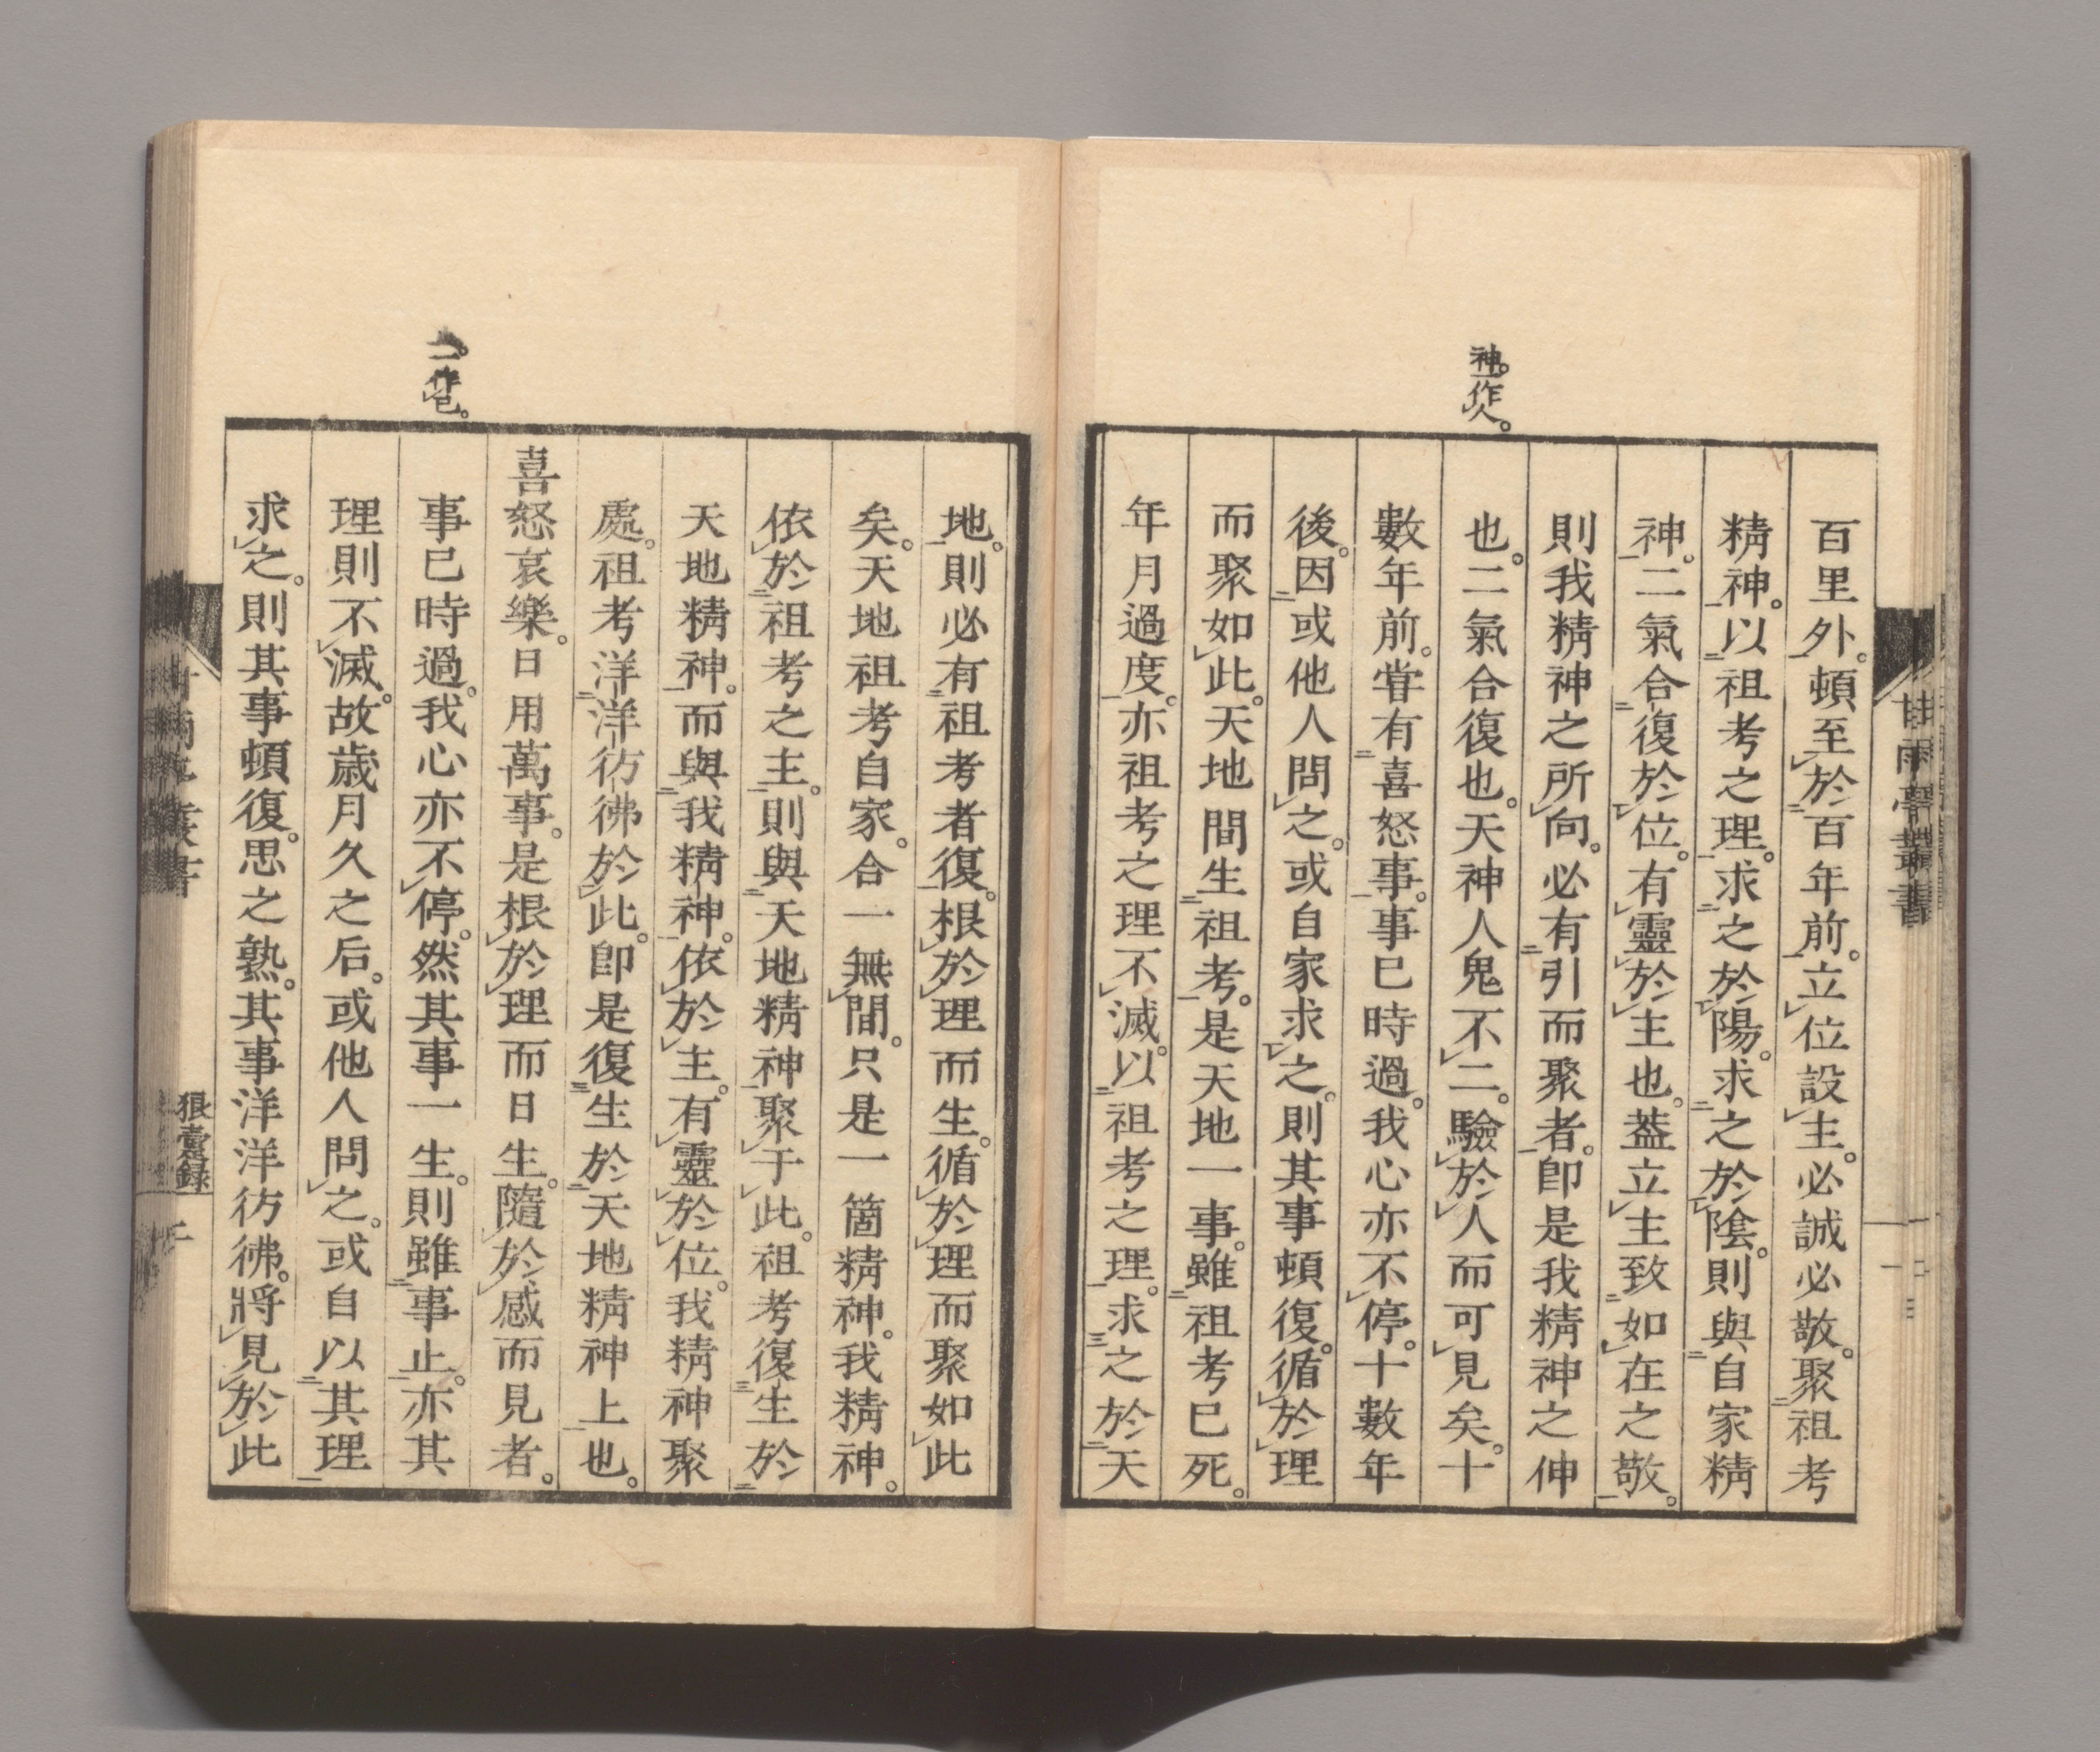 甘雨亭叢書
神一作人。
百里外。頓至於百年前。立位設主。必誠必敬。聚祖考
精神。以祖考之理。求之於陽。求之於陰。則與自家精
神。二氣合復於位。有靈於主也。蓋立主致如在之敬。
則我精神之所向。必有引而聚者。卽是我精神之伸
也。二氣合復也。天神人鬼不二。驗於人而可見矣。十
數年前。嘗有喜怒事。事已時過。我心亦不停。十數年
後。因或他人問之。或自家求之。則其事頓復。循於理
而聚如此。天地間生祖考。是天地一事。雖祖考已死。
年月過度。亦祖考之理不滅。以祖考之理。求之於天
地。則必有祖考者復。根於理而生。循於理而聚如此
矣。天地祖考自家。合一無間。只是一箇精神。我精神。
依於祖考之主。則與天地精神聚于此。祖考復生於
天地精神。而與我精神。依於主。有靈於位。我精神聚
處。祖考洋洋彷彿於此。卽是復生於天地精神上也。
喜怒哀樂。日用萬事。是根於理而日生。隨於感而見者。
事已時過。我心亦不停。然其事一生。則雖事止。亦其
理則不滅。故歲月久之后。或他人問之。或自以其理
求之。則其事頓復。思之熟。其事洋洋彷彿。將見於此
一作已。
狼疐録